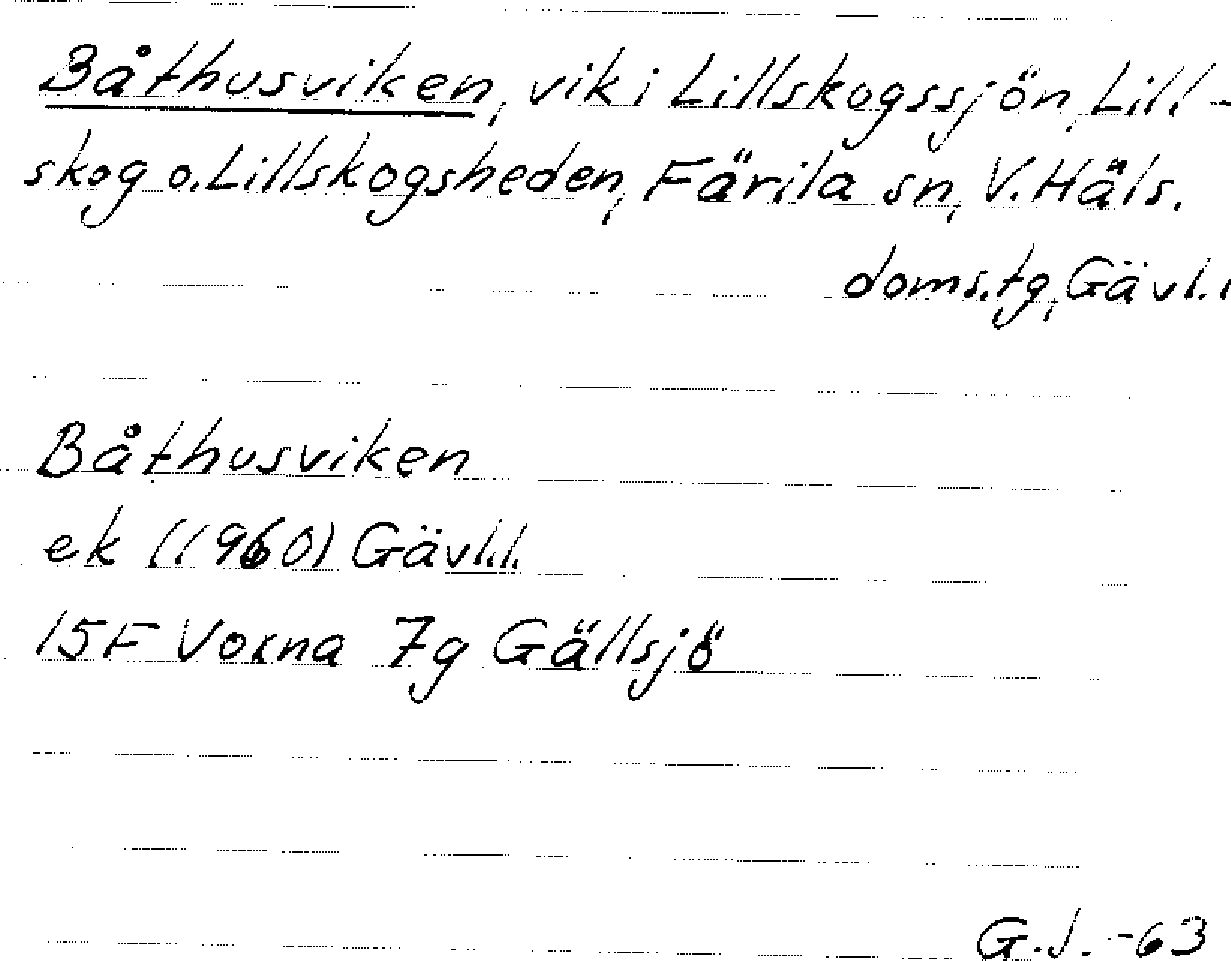 Båthusviken, vik i Lillskogssjön, Lill-
skog o. Lillskogsheden, Färila sn, V. Häls.
doms.tg, Gävl.
Båthusviken
ek (1960) Gävl.l.
15F Voxna 7g Gällsjö
G.J. -63